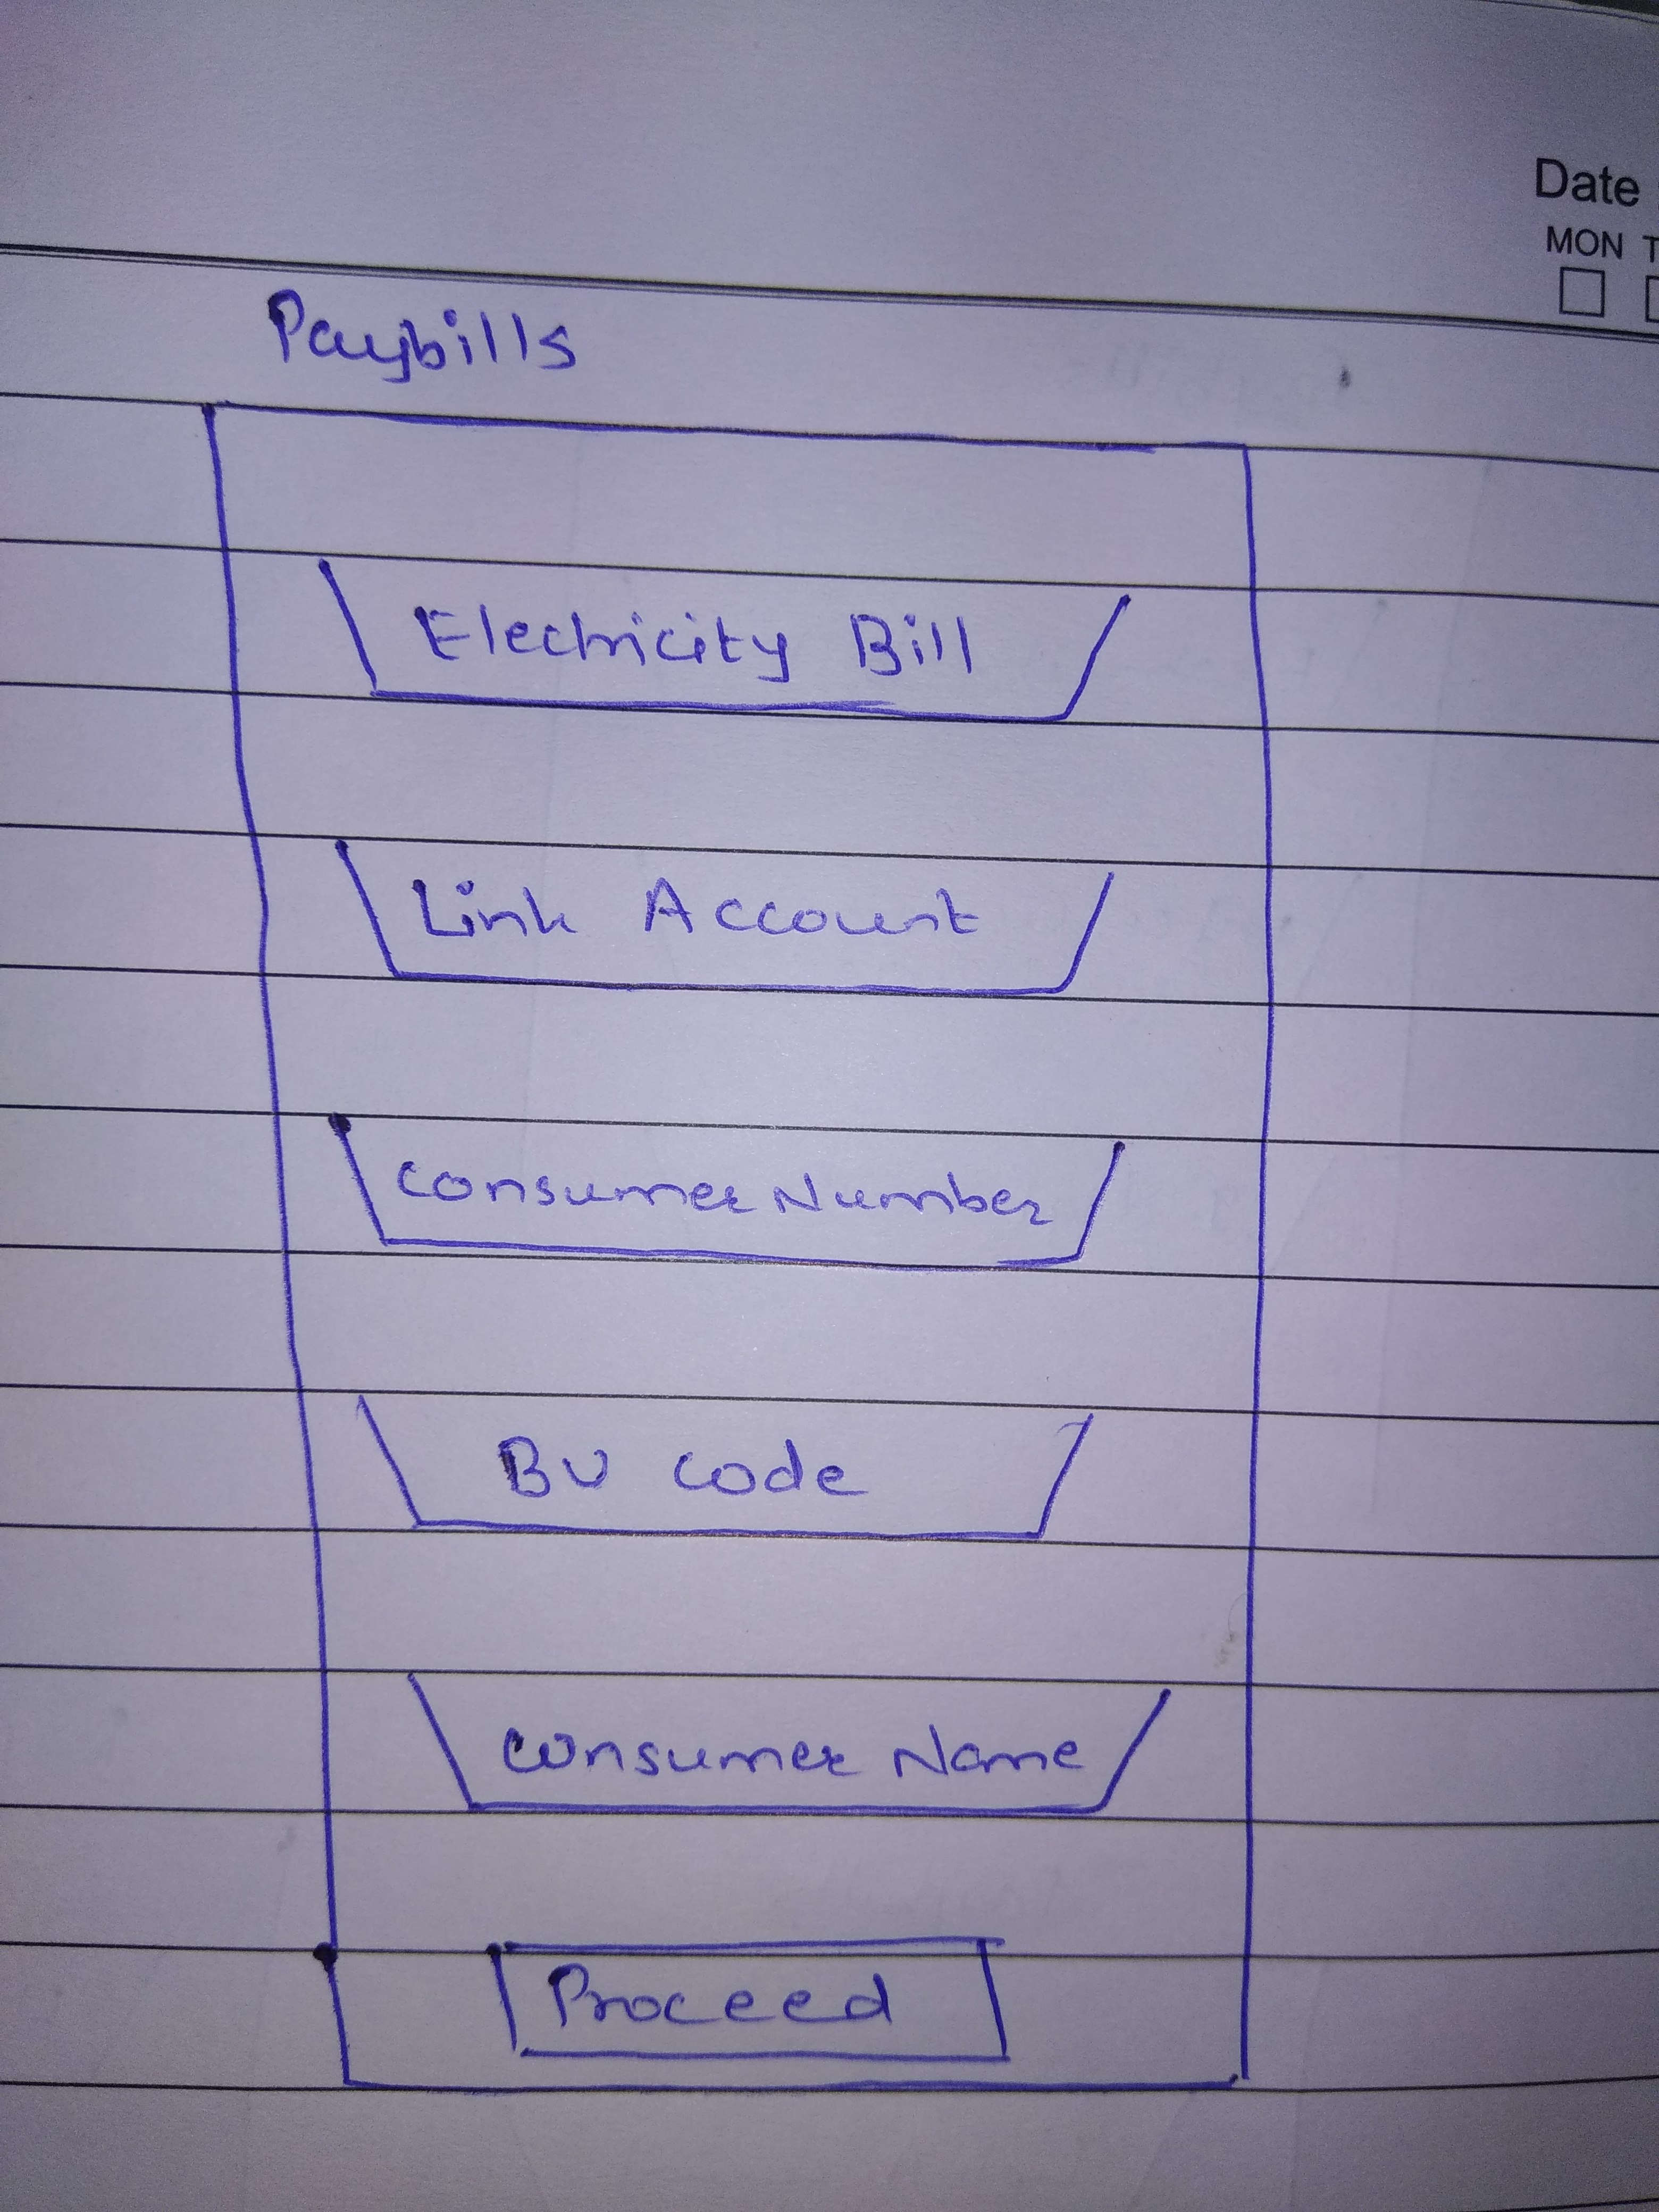 Date
MON T
Paybills
Electricity Bill
Link Account
Consumer Number
BU code
Consumer Name
Proceed